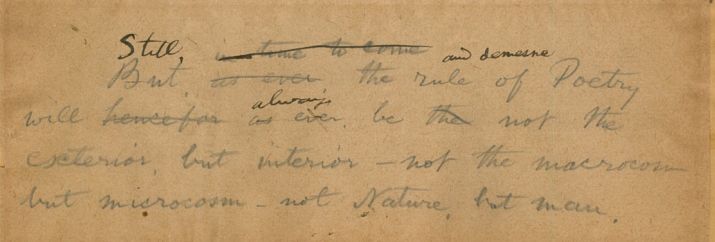 Still, in time to come and demesne
But, as ever the rule of Poetry
always
will hencefor as ever, be the not the
exterior, but interior – not the macrocosm
but microcosm – not Nature, but man.